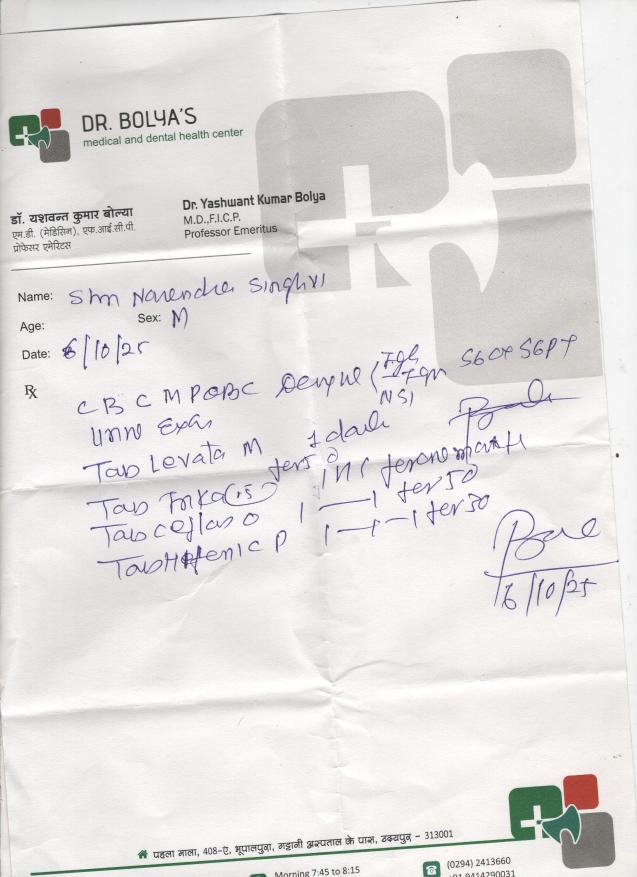 DR. BOLYA'S
medical and dental health center
डॉ. यशवन्त कुमार बोल्या
एम.डी. (मेडिसिन), एफ.आई.सी.पी.
प्रोफेसर एमेरिटस
Dr. Yashwant Kumar Bolya
M.D.,F.I.C.P.
Professor Emeritus
Name: Shri Narendra Singhvi
Age: Sex: M
Date: 6/10/25
Rx
CBC MP QBC Dengue ( IgG IgM NS1 SGOT SGPT
Urine Exam
Tab Levata M 1 daily
for 50
Tab (.5) 1 HS for one month
Tab O 1 — 1 for 50
Tab P 1 — 1 — 1 for 30
6/10/25
पहला माला, 408-ए, भूपालपुरा, गट्टानी अस्पताल के पास, उदयपुर - 313001
Morning 7:45 to 8:15
(0294) 2413660
+91 9414290031